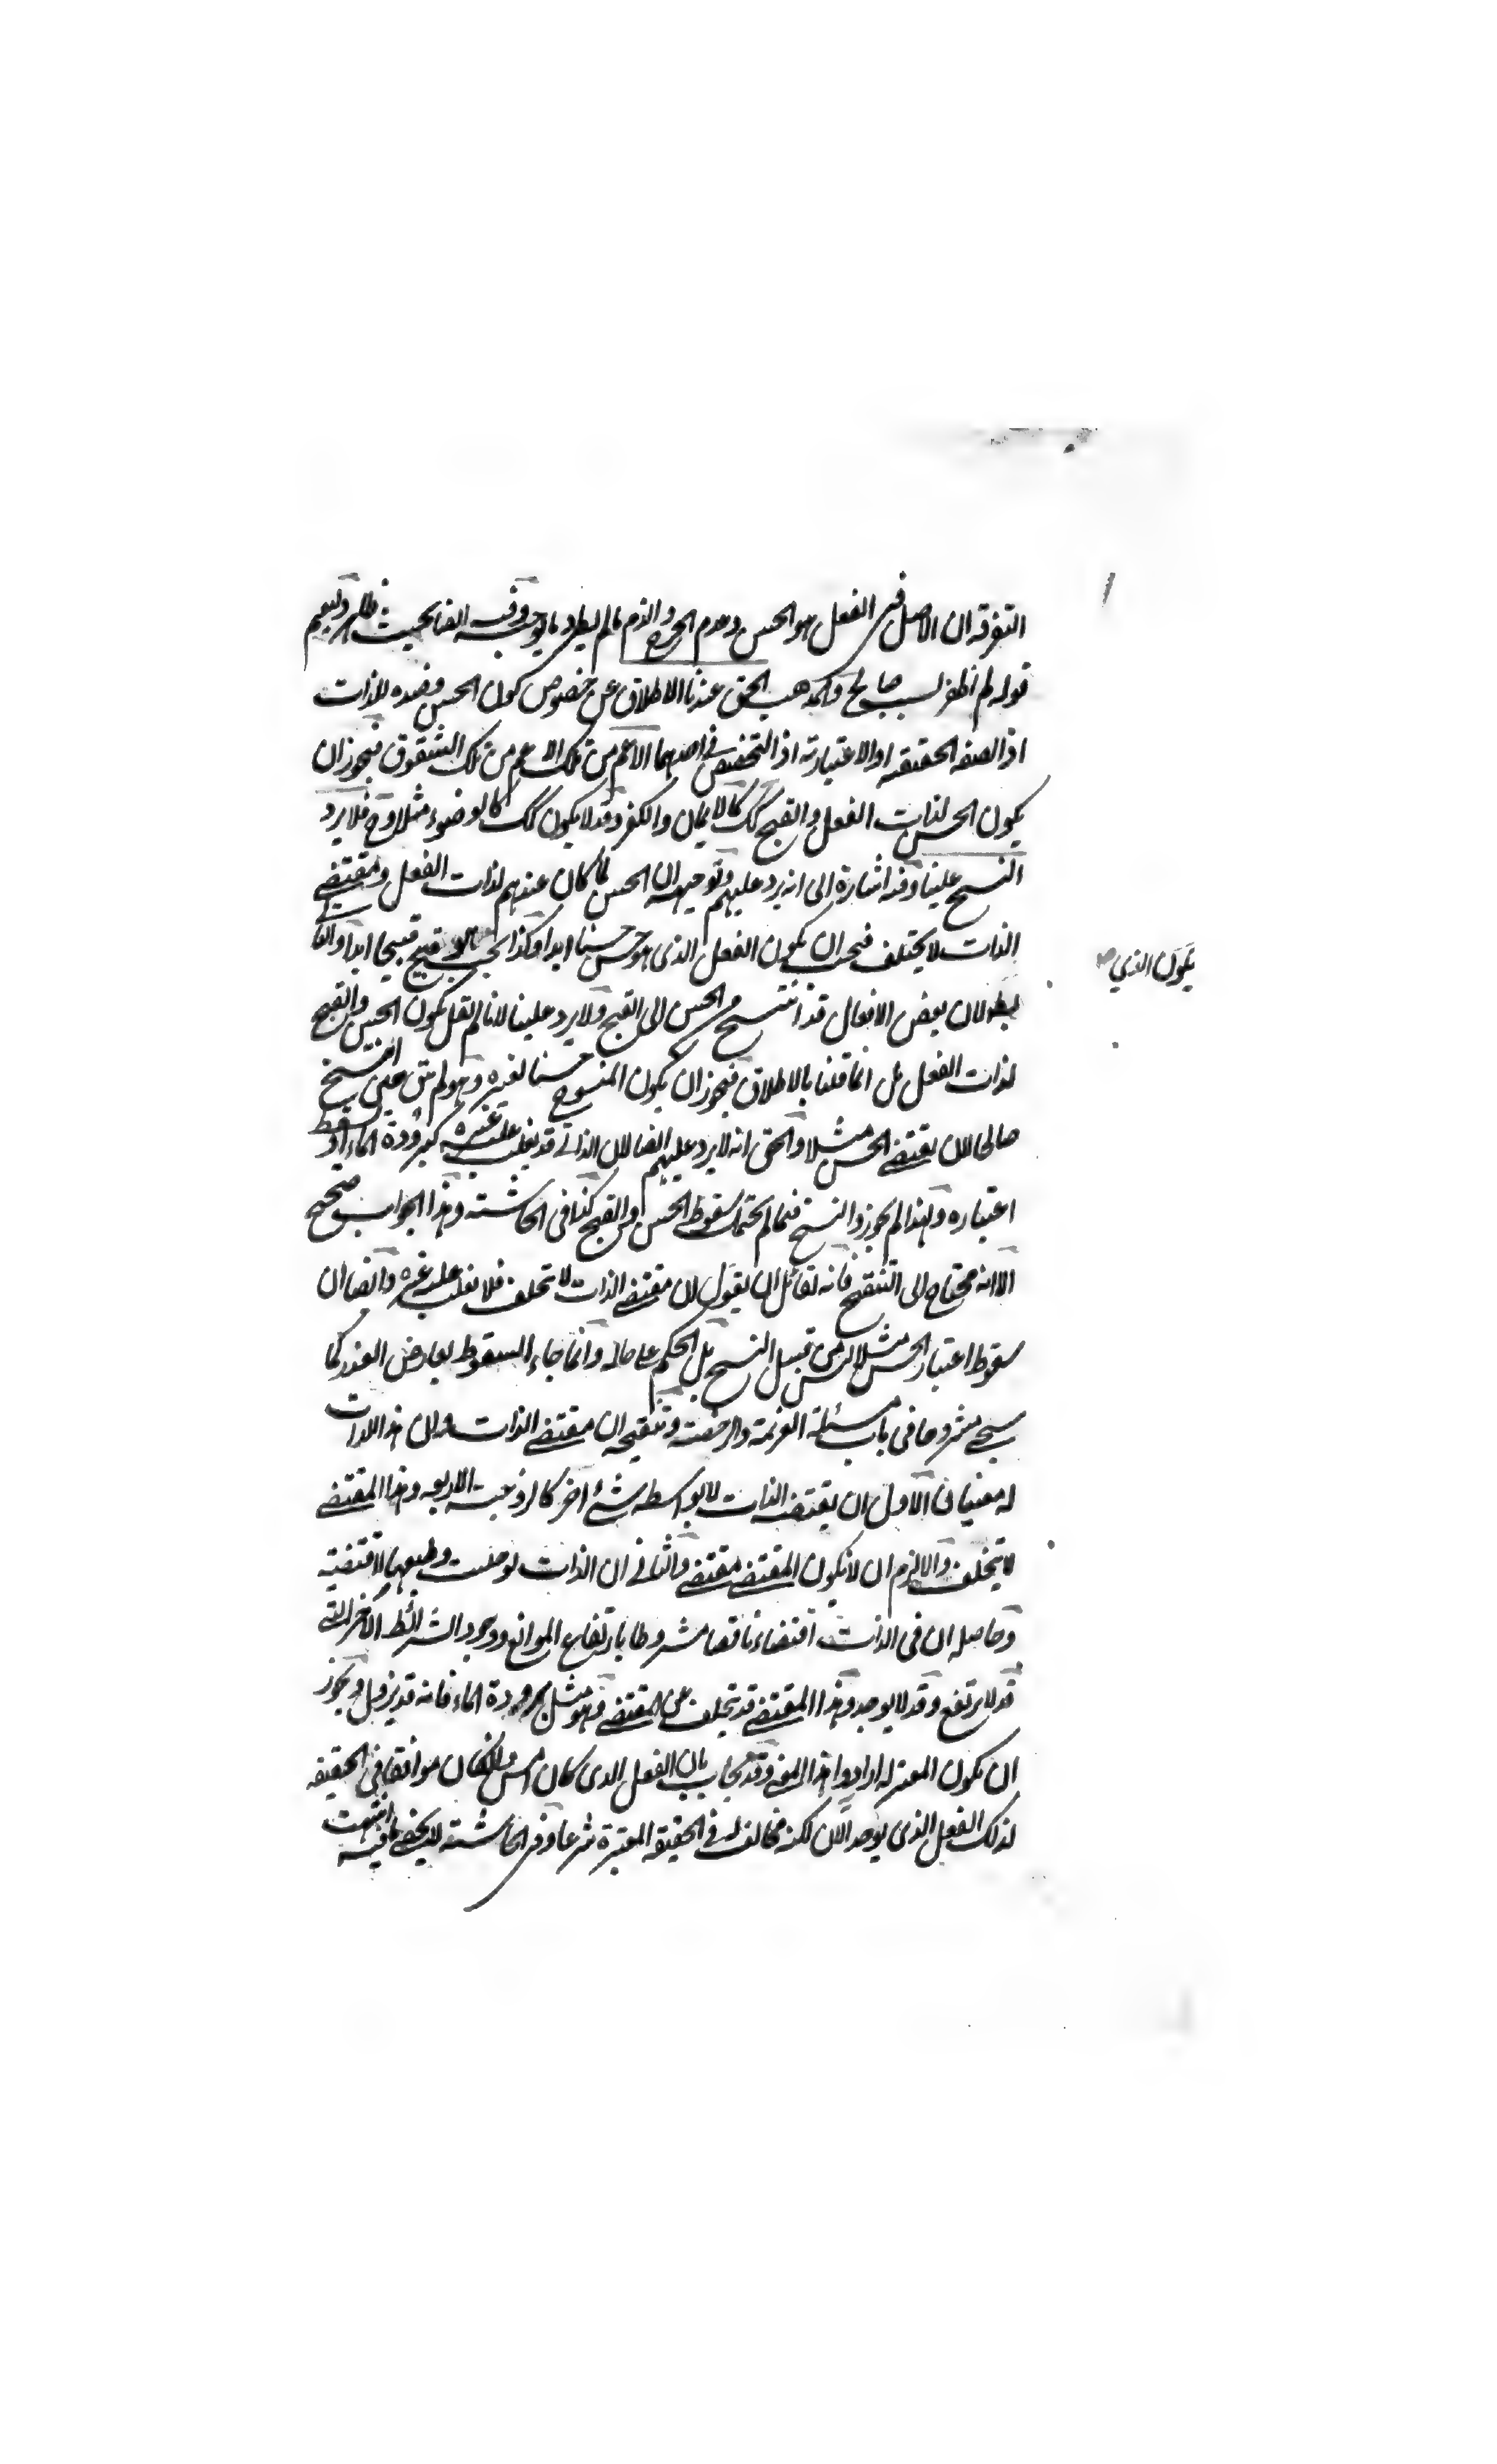 التفرقة ان الاصل فى الفعل هو الحسن وعدم الحرج والذم ما لم يطرء ما يوجبه وفيه ايضا بحيث
قوله لم اظفر بسبب صالح والمذهب الحق عندنا الاطلاق عن خصوص كون الحسن وضده للذات
او الصفة الحقيقية او الاعتبارية اذ التخصيص فى احدهما الاعم من تلك الشقوق فيجوز ان
يكون الحسن لذات الفعل والقبح كك كالايمان والكفر وقد لا يكون كك كالوضوء مثلا وح فلا يرد
النسخ علينا وفيه اشارة الى انه يرد عليهم وتوجيهه ان الحسن لما كان عندهم لذات الفعل ومقتضى
الذات لا يختلف فيجب ان يكون الفعل الذى هو حسن حسنا ابدا وكذا يجب هو قبيح قبيحا ابدا
يكون الذي
لان بعض الافعال قد انتسخ من الحسن الى القبح ولا يرد علينا لانا لم نقل بكون الحسن والقبح
لذات الفعل بل انما قلنا بالاطلاق فيجوز ان يكون المنسوخ حسنا لغيره وهو لم يبق حين انتسخ
صالحا لان يقتضى الحسن مثلا والحق انه لا يرد عليهم ايضا لان الذاتى قد يغلب عليه غيره كبرودة الماء او سقط
اعتباره ولهذا لم يجوزوا النسخ فيما لم يحتمل سقوط الحسن او القبح كذا فى الحاشية وهذا الجواب صحيح
الا انه محتاج الى التنقيح فانه لقائل ان يقول ان مقتضى الذات لا تخلف فلا يغلب عليه غيره وايضا ان
سقوط اعتبار الحسن مثلا ليس من قبيل النسخ بل الحكم على حاله وانما جاء السقوط بعارض العذر كما
سيجئ مشروحا فى باب مسئلة العزيمة والرخصة وتنقيحه ان مقتضى الذات
له معنيان الاول ان يقتضيه الذات لا بواسطة شئ آخر كالزوجية للاربعة وهذا المقتضى
لا يتخلف والا لزم ان لا يكون المقتضى مقتضى والثانى ان الذات لو خليت وطبعها لاقتضته
وحاصله ان فى الذات اقتضاء ناقصا مشروطا بارتفاع الموانع ووجود الشرائط الاخر التى
قد لا يرتفع وقد لا يوجد وهذا المقتضى قد يتخلف عن المقتضى وهو مثل برودة الماء فانه قد يزول ويجوز
ان يكون المعتزلة ارادوا هذا المعنى وقد يجاب بان الفعل الذى كان امس وان كان موافقا فى الحقيقة
لذلك الفعل الذى يوجد الان لكنه مخالف له فى الحقيقة المعتبرة شرعا وفى الحاشية لا يخفى ما فيه انتهت